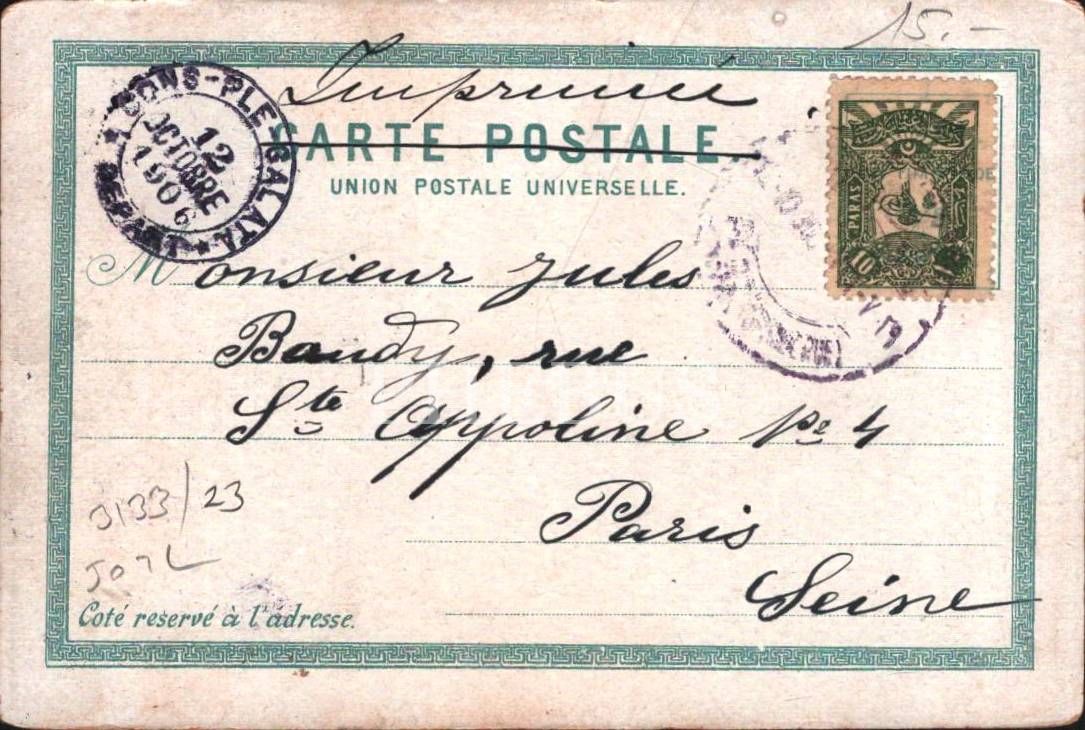 15.-
Imprimé
CARTE POSTALE.
UNION POSTALE UNIVERSELLE.
CONS-PLE GALATA
12
OCTOBRE
1906
DEPART
PARAS
10
Monsieur Jules
Baudy, rue
Ste Appoline No 4
Paris
Seine
3133/23
Coté reservé à l'adresse.